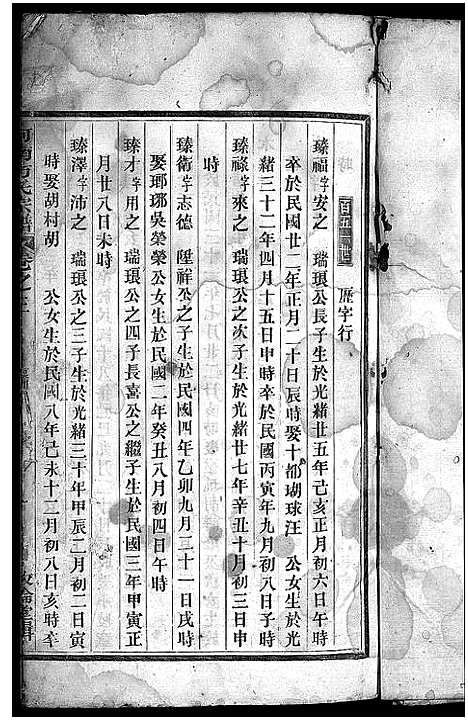 百五世 歷字行
臻福字安之 瑞琅公長子生於光緒廿五年己亥正月初六日午時
卒於民國廿二年正月二十日辰時娶十都瑚球汪 公女生於光
緒三十二年四月十五日申時卒於民國丙寅年九月初八日子時
臻祿字來之 瑞琅公之次子生於光緒廿七年辛丑十月初三日申
時
臻衛字志德 陞祥公之子生於民國四年乙卯九月三十一日戌時
娶瑯琊吳榮榮公女生於民國二年癸丑八月初四日午時
臻才字用之 瑞琅公之四子長喜公之繼子生於民國三年甲寅正
月廿八日未時
臻澤字沛之 瑞琅公之三子生於光緒三十年甲辰二月初二日寅
時娶胡村胡 公女生於民國八年己未十二月初八日亥時卒